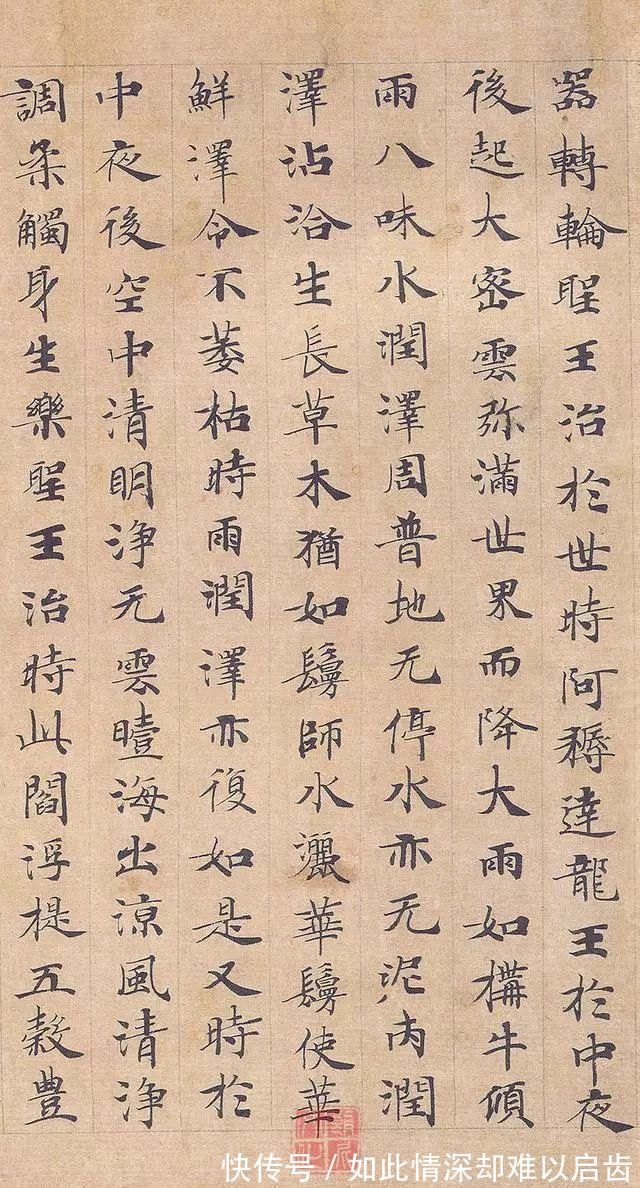 器轉輪聖王治於世時阿耨達龍王於中夜
後起大密雲弥滿世界而降大雨如構牛傾
雨八味水潤澤周普地无停水亦无泥內潤
澤沾洽生長草木猶如鬘師水灑華鬘使華
鮮澤令不萎枯時雨潤澤亦復如是又時於
中夜後空中清明浄无雲曀海出涼風清浄
調柔觸身生樂聖王治時此閻浮提五穀豊
快传号/如此情深却难以启齿